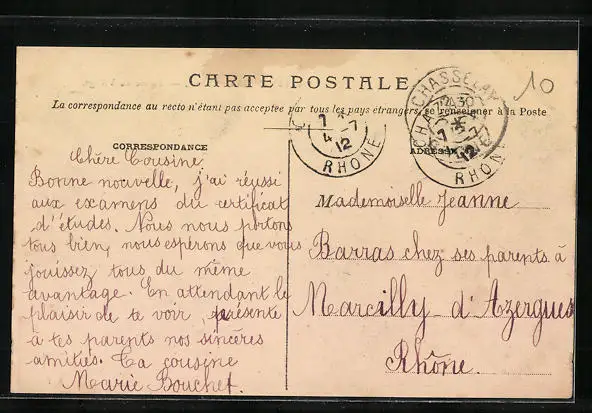 CARTE POSTALE
La correspondance au recto n'étant pas acceptée par tous les pays étrangers, se renseigner à la Poste
10
CHASSELAY
7 30
12
RHONE
7
4 -7
12
RHONE
CORRESPONDANCE
ADRESSE
Chère Cousine
Bonne nouvelle, j'ai réussi
aux examens du certificat
d'études. Nous nous portons
tous bien, nous espérons que vous
jouissez tous du même
avantage. En attendant le
plaisir de te voir, présente
à tes parents nos sincères
amitiés. Ta cousine
Marie Bouchet.
Mademoiselle Jeanne
Barras chez ses parents à
Marcilly-d'Azergues
Rhône.